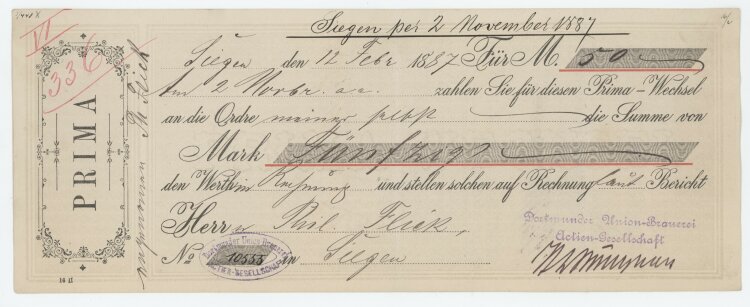 VI
336
Siegen per 2 November 1887
Siegen den 12 Febr 1887 Für M. 50
Am 2 Novbr. a.c. zahlen Sie für diesen Prima-Wechsel
an die Ordre meiner selbst die Summe von
Mark Fünfzig
den Werth in Rechnung und stellen solchen auf Rechnung laut Bericht
Herrn Phil Flick,
No 10555 in Siegen
Dortmunder Union-Brauerei
Actien-Gesellschaft
Dortmunder Union Brauerei
ACTIEN-GESELLSCHAFT
PRIMA
angenommen Ph Flick
16 II